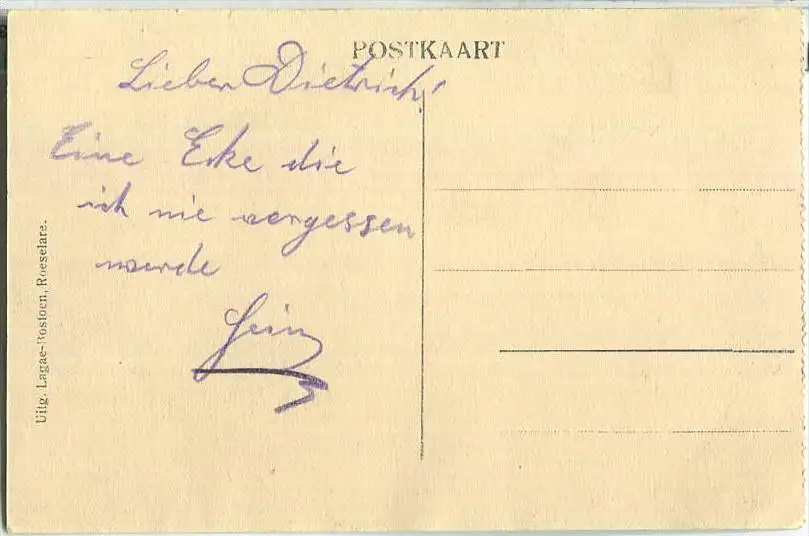 POSTKAART
Lieber Dietrich!
Eine Ecke die
ich nie vergessen
werde
Heinz
Uitg. Lagae-Bostoen, Roeselare.